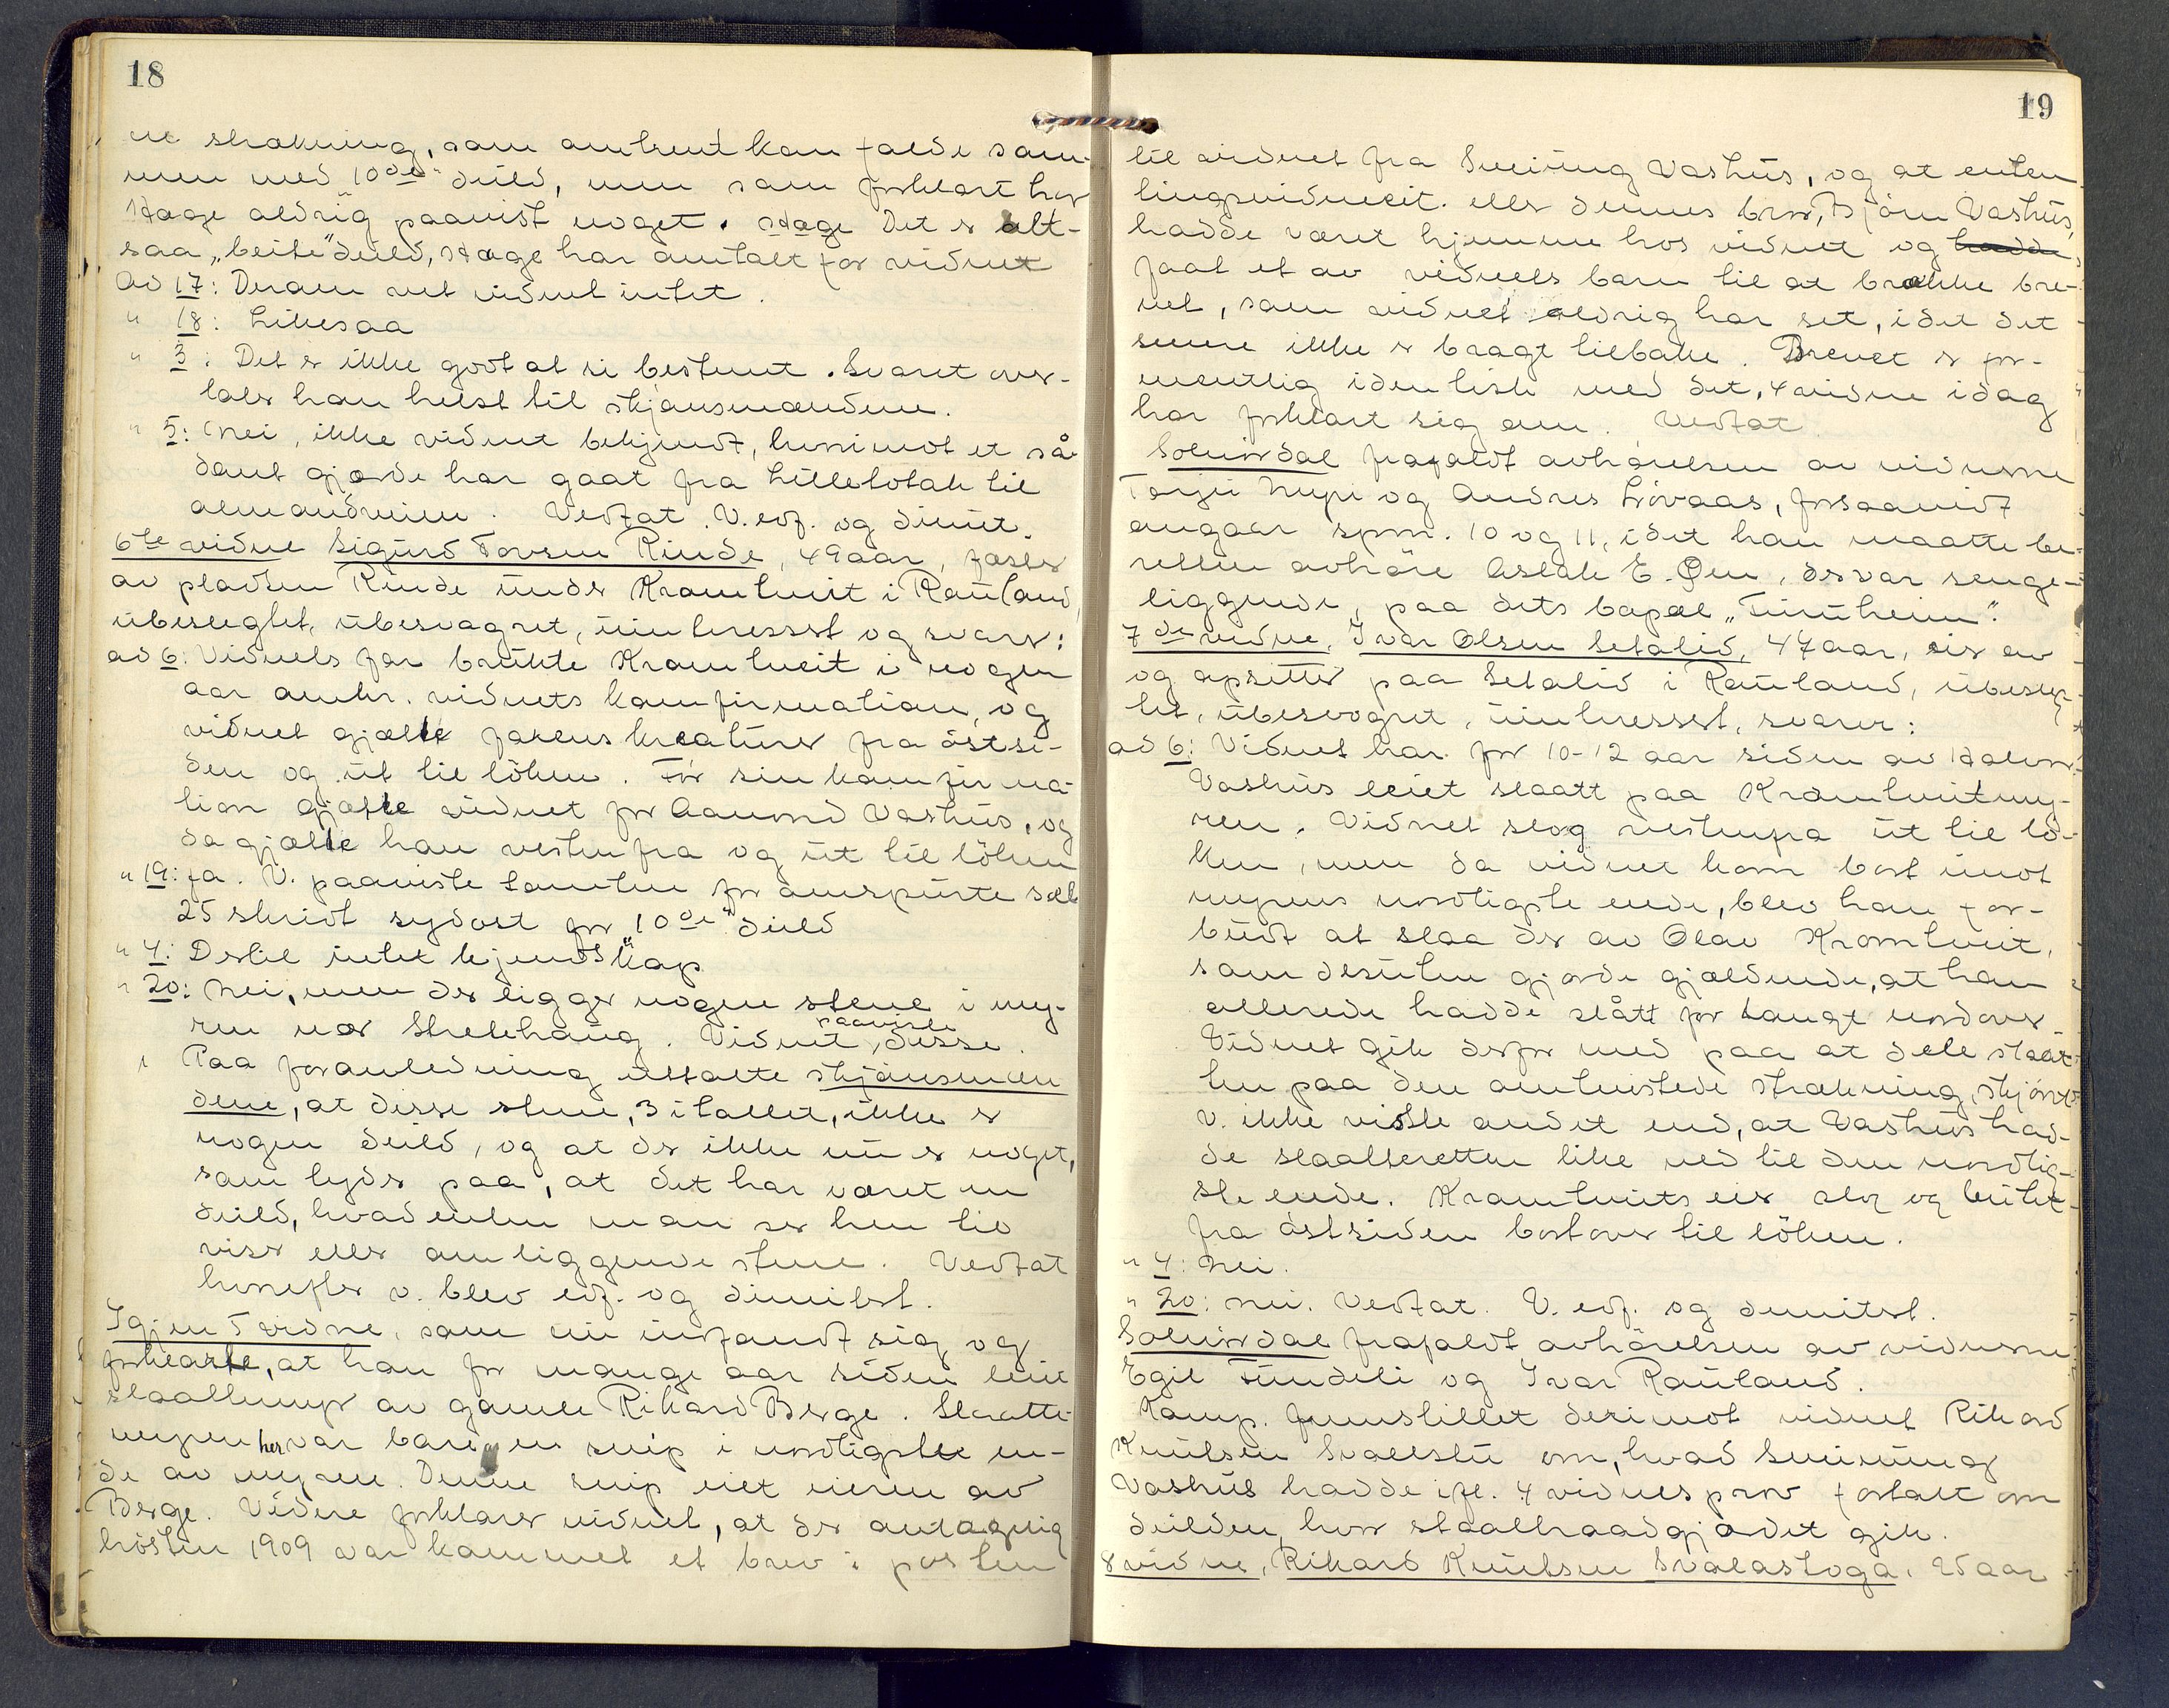 18
ne strækning, som omtrent kan falde sam-
men med 10de deild, men som forklart har
Hæge aldrig paavist noget. Hæge Det er alt-
saa „beite" deild, Hæge har omtalt for vidnet
Ad 17: Derom vet vidnet intet.
" 18: Likesaa
" 3: Det er ikke godt at si bestemt. Svaret over-
lates han helst til skjønsmændene.
" 5: Nei, ikke vidnet bekjendt, hvorimot et så-
dant gjærde har gaat fra Lilletotak til
almandveien. Vedtat. V. edf. og dimit.
6te vidne Sigurd Torsen Rinde, 49 aar, fæster
av pladsen Rinde under Kromtveit i Rauland,
ubeslegtet, ubesvogret, uinteressert og svarer:
ad 6: Vidnets far brukte Kromtveit i nogen
aar omkr. vidnets konfirmation, og
vidnet gjætte farens kreaturer fra østsi-
den og ut til løken. Før sin konfirma-
tion gjætte vidnet for Aamund Vashus, og
da gjætte han vestenfra og ut til løken
" 19: Ja. V. paaviste tomten for omspurte sæl
25 skridt sydost for "10de" deild
" 4: Dertil intet kjendskap
" 20: Nei, men der ligger nogen stene i my-
ren nær Strekehaug. Vidnet paaviste disse.
Paa foranledning uttalte skjønsmæn
dene, at disse stene, 3 i tallet, ikke er
nogen deild, og at der ikke nu er noget,
som tyder paa, at det har været en
deild, hvad enten man ser hen til
viser eller omliggende stene. Vedtat
hvorefter v. blev edf. og dimitert.
Igjen Tvidne, som nu indfandt sig og
forklarte, at han for mange aar siden leiet
slaattemyr av gamle Rikard Berge. Slaatte-
myren her var bare en snip i nordligste en-
de av myren. Denne snip eiet eieren av
Berge. Videre forklarer vidnet, at der antagelig
høsten 1909 var kommet et brev i posten
19
til vidnet fra Sveinung Vashus, og at enten
lingsvidneeit. eller dennes bror, Bjørn Vashus,
hadde været hjemme hos vidnet og hadde
faat et av vidnets barn til at brække bre-
vet, som vidnet aldrig har set, idet det
senere ikke er bragt tilbake. Brevet er for-
mentlig identisk med det, 4 vidne idag
har forklart sig om. Vedtat
Solnørdal frafaldt avhørelsen av vidnerne
Torjus Nupi og Andres Løvaas, forsaavidt
angaar spm. 10 og 11, idet han maatte be-
retten avhøre Aslak E. Øen, der var senge-
liggende, paa dets bopæl „Furuheim".
7de vidne, Ivar Olsen Setalid, 47 aar, eier av
og opsitter paa Setalid i Rauland, ubesleg-
tet, ubesvogret, uinteressert, svarer:
ad 6: Vidnet har for 10-12 aar siden av Halvor
Vashus leiet slaatt paa Kromtveitmy-
ren. Vidnet slog vestenfra ut til lø-
ken, men da vidnet kom bort imot
myrens nordligste ende, blev han for-
budt at slaa der av Olav Kromtveit,
som desuten gjorde gjældende, at han
allerede hadde slått for langt nordover.
Vidnet gik derfor med paa at dele slaat-
ten paa den omtvistede strækning, skjønt
v. ikke visste andet end, at Vashus had-
de slaatteretten like ned til den nordlig-
ste ende. Kromtveits eier slog og beitet
fra østsiden bortover til løken.
" 4: Nei.
" 20: Nei. Vedtat. V. edf. og dimitert.
Solnørdal frafaldt avhørelsen av vidnerne
Egil Fundeli og Ivar Rauland.
Komp. fremstillet derimot vidnet Rikard
Knutsen Svalestu om, hvad Sveinung
Vashus hadde ifl. 4 vidnes prov fortalt om
deilden, hvor staaltraadgjærdet gik.
8 vidne, Rikard Knutsen Svalastoga, 25 aar